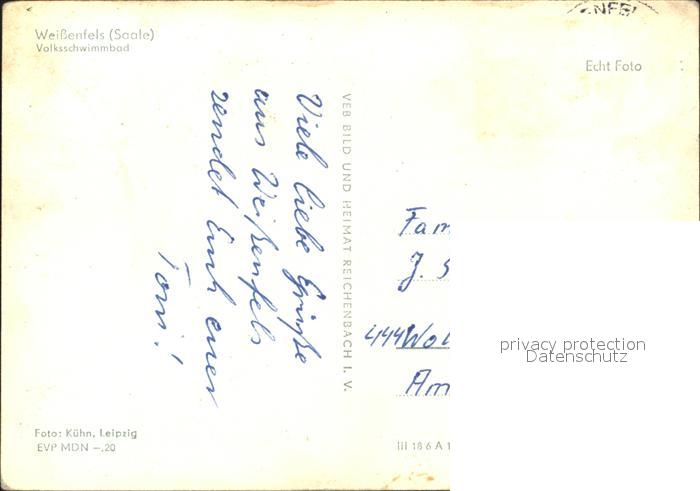 Weißenfels (Saale)
Volksschwimmbad
Echt Foto
Viele liebe Grüße
aus Weißenfels
sendet Euch euer
Toni!
VEB BILD UND HEIMAT REICHENBACH I. V.
Fam
J. S
444 Wol
Am
privacy protection
Datenschutz
Foto: Kühn, Leipzig
EVP MDN –,20
III 18 6 A 1